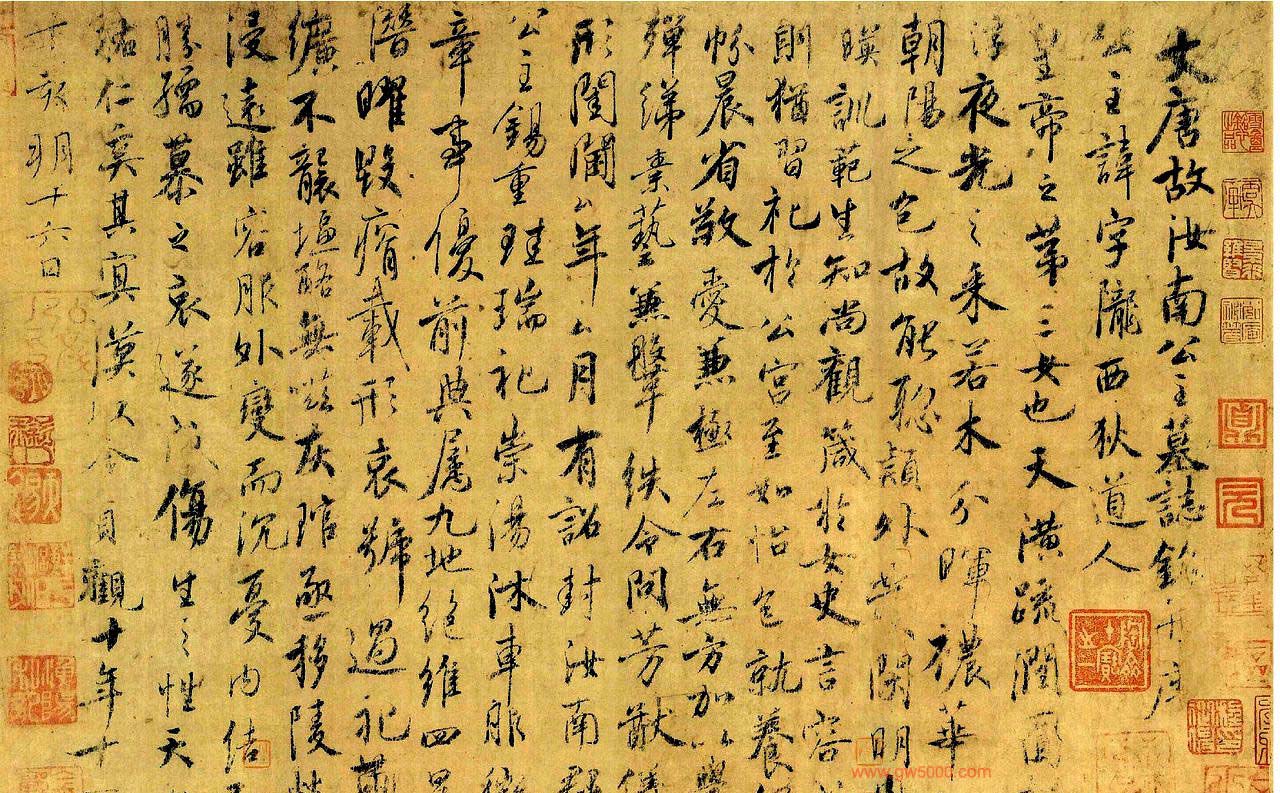 大唐故汝南公主墓誌銘并序
公主諱字隴西狄道人
皇帝之第三女也天潢疏潤圓
浮夜光之采若木分暉穠華
朝陽之色故能聰穎外發閑明
暎訓範生知尚觀箴於女史言容
則猶習礼於公宮至如怡色就養
帉晨省敬愛兼極左右無方加以學
殫綈素藝兼鞶紩令問芳猷儀
形閨閫厶年厶月有詔封汝南郡
公主錫重珪瑞礼崇湯沐車服徽
章事優前典属九地絕維四星
潛曜毀瘠載形哀號過礼繭
纊不襲塩酪無嗞灰琯亟移陵
浸遠雖容服外變而沉憂內結
勝孺慕之哀遂成傷生之性天
祐仁奚其冥漠以今貞觀十年十
丁亥朔十六日
www.gw5000.com